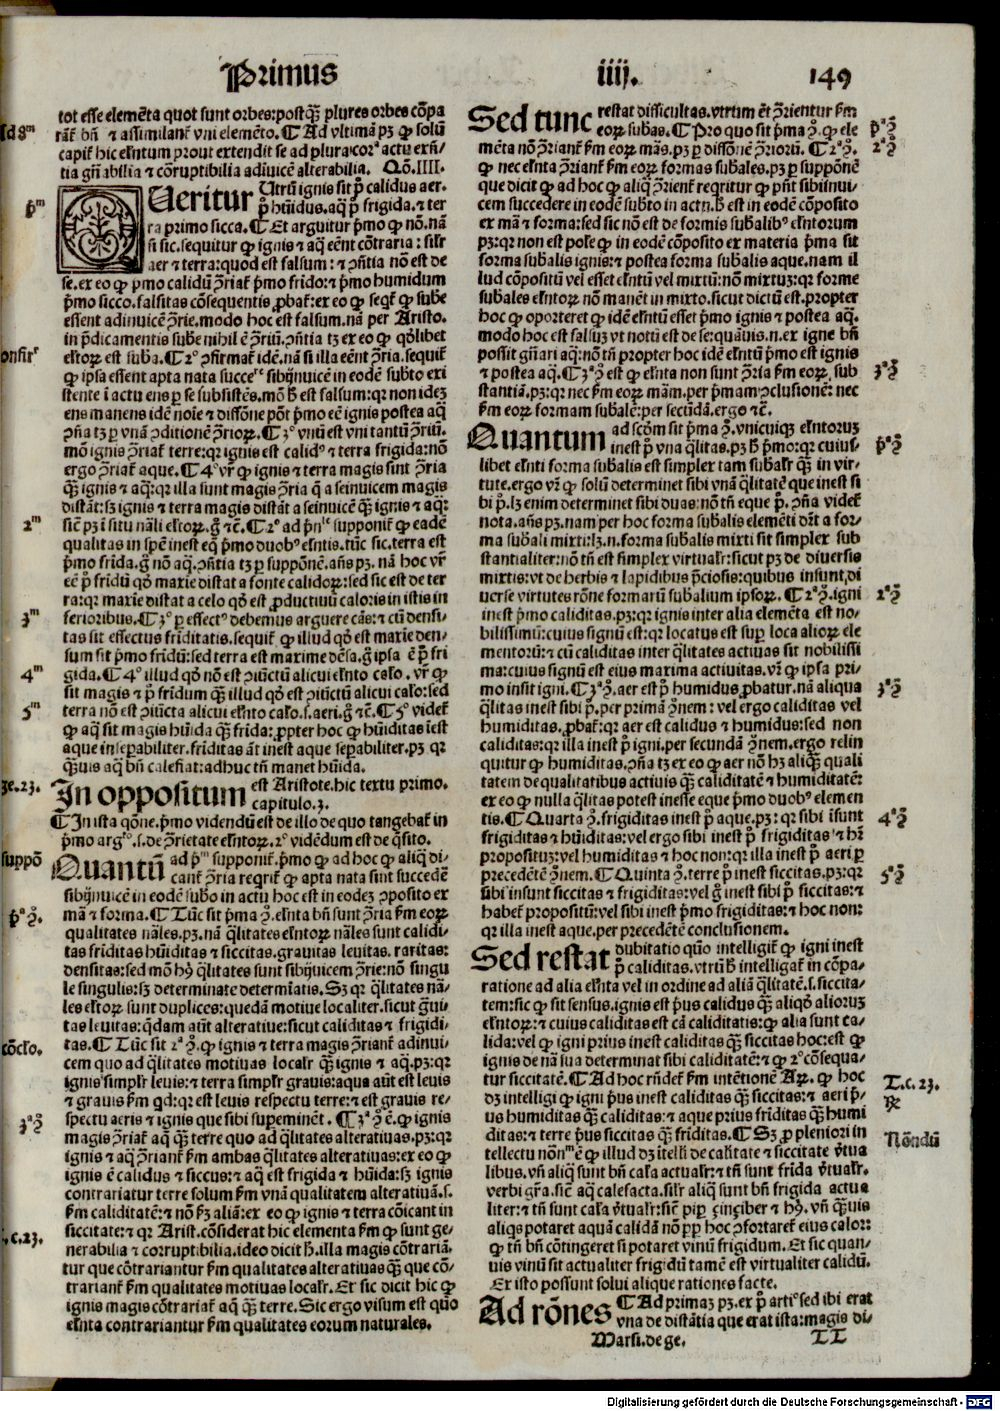 Primus
iiij.
149
tot esse elemēta quot sunt orbes: postq̄ʒ plures orbes cōpa
rāt̄ bn̄ ⁊ assimilant̄ vni elemēto. ¶ Ad vltimā pʒ ꝙ solū
capit̄ hic eln̄tum prout extendit se ad plura: cor̄ᵃ actu exn̄/
tia gn̄abilia ⁊ coruptibilia adiuicē alterabilia. Qō. IIII.
Queritur Utrū ignis sit p̄ calidus aer.
p̄ hūidus. aq̄ p̄ frigida. ⁊ ter
ra primo sicca. ¶ Et arguitur p̄mo ꝙ nō. nā
si sic. sequitur ꝙ ignis ⁊ aq̄ eēnt cōtraria: silr̄
aer ⁊ terra: quod est falsum: ⁊ ꝯn̄tia nō est de
se. ex eo ꝙ p̄mo calidū ꝯ̄riat̄ p̄mo frido: ⁊ p̄mo humidum
p̄mo sicco. falsitas cōsequentis ꝓbat̄: ex eo ꝙ seqt̄ ꝙ sube
essent adinuicē ꝯ̄rie. modo hoc est falsum. nā per Aristo.
in p̄dicamentis sube nihil ē ꝯ̄riū. ꝯn̄tia tʒ ex eo ꝙ qōlibet
eln̄toꝝ est suba. ¶ 2º ꝯfirmat̄ idē. nā si illa eēnt ꝯ̄ria. sequit̄
ꝙ ipsa essent apta nata succe.ʳᵉ sibijnuicē in eodē subto exi
stente ī actu ens per se subsistēs. mō ℏ est falsum: qꝛ non ideʒ
ens manens idē noīe ⁊ diffōne pōt p̄mo eē ignis postea aq̄
ꝯn̄a tʒ p̄ vnā ꝯditionē ꝯ̄rioꝝ. ¶ 3º vnū est vni tantū ꝯ̄riū.
mō ignis ꝯ̄riat̄ terre: qꝛ ignis est calidꝰ ⁊ terra frigida: nō
ergo ꝯ̄riat̄ aque. ¶ 4º vr̄ ꝙ ignis ⁊ terra magis sint ꝯ̄ria
q̄ʒ ignis ⁊ aq̄: qꝛ illa sunt magis ꝯ̄ria q̄ a seinuicem magis
distāt: sʒ ignis ⁊ terra magis distāt a seinuicē q̄ʒ ignis ⁊ aq̄:
sic̄ pʒ ī situ nāli eln̄toꝝ. g̊ ⁊c̄. ¶ 2º ad p̄nˡᵉ supponit̄ ꝙ eadē
qualitas in spē inest eq̄ p̄mo duobꝰ eln̄tis. tūc sic. terra est
p̄mo frida. g̊ nō aq̄. ꝯn̄tia tʒ p̄ supponē. an̄s pʒ. nā hoc vr̄
eē p̄ fridū qō maxie distat a fonte calidoꝝ: sed sic est de ter
ra: qꝛ maxie distat a celo qō est ꝓductiuū caloris in istis in
ferioribus. ¶ 3º p̄ effectꝰ debemus arguere cās: ⁊ cū densi/
tas sit effectus friditatis. sequit̄ ꝙ illud qō est maxie den/
sum sit p̄mo fridū: sed terra est maxime dēsa. g̊ ipsa ē p̄ fri
gida. ¶ 4º illud qō nō est ꝯiūctū alicui eln̄to calo. vr̄ ꝙ
sit magis ⁊ p̄ fridum q̄ʒ illud qō est ꝯiūctū alicui calo: sed
terra nō est ꝯiūcta alicui eln̄to calo. s. aeri. g̊ ⁊c̄. ¶ 5º videt̄
ꝙ aq̄ sit magis hūida q̄ʒ frida: ꝓpter hoc ꝙ hūiditas iest
aque inseꝑabiliter. friditas āt inest aque seꝑabiliter. pʒ qꝛ
q̄ʒuis aq̄ bn̄ calefiat: adhuc tn̄ manet hūida.
In oppositum est Aristote. hic textu primo.
capitulo. 3.
¶ In ista qōne. p̄mo videndū est de illo de quo tangebat̄ in
p̄mo argᵗᵒ. s. de ꝯ̄rietate eln̄toꝝ. 2º vidēdum est de q̄sito.
Quantū ad p̄ᵐ supponit̄. p̄mo ꝙ ad hoc ꝙ aliq̄ di/
cant̄ ꝯ̄ria reqrit̄ ꝙ apta nata sint succedē
sibijnuicē in eodē subo in actu hoc est in eodeʒ ꝯposito ex
mā ⁊ forma. ¶ Tūc sit p̄ma ꝯ̊. eln̄ta bn̄ sunt ꝯ̄ria fm̄ eoꝝ
qualitates nāles. pʒ. nā q̄litates eln̄toꝝ nāles sunt calidi/
tas friditas hūiditas ⁊ siccitas. grauitas leuitas. raritas:
densitas: sed mō hꝰ q̄litates sunt sibijuicem ꝯ̄rie: nō singu
le singulis: sʒ determinate determīatis. Sʒ qꝛ q̄litates nā/
les eln̄toꝝ sunt duplices: quedā motiue localiter. sicut g̊ui/
tas leuitas: q̄dam aūt alteratiue: sicut caliditas ⁊ frigidi/
tas. ¶ Tūc sit 2ᵃ ꝯ̊. ꝙ ignis ⁊ terra magis ꝯ̄riant̄ adinui/
cem quo ad q̄litates motiuas localr̄ q̄ʒ ignis ⁊ aq̄. pʒ: qꝛ
ignis simplr̄ leuis: ⁊ terra simplr̄ grauis: aqua aūt est leuis
⁊ grauis fm̄ qd: qꝛ est leuis respectu terre: ⁊ est grauis re/
spectu aeris ⁊ ignis que sibi supeminēt. ¶ 3ᵃ ꝯ̊ ē. ꝙ ignis
magis ꝯ̄riat̄ aq̄ q̄ʒ terre quo ad q̄litates alteratiuas. pʒ: qꝛ
ignis ⁊ aq̄ ꝯ̄riant̄ fm̄ ambas q̄litates alteratiuas: ex eo ꝙ
ignis ē calidus ⁊ siccus: ⁊ aq̄ est frigida ⁊ hūida: sʒ ignis
contrariatur terre solum fm̄ vnā qualitatem alteratiuā. s.
fm̄ caliditatē: ⁊ nō fʒ aliā: ex eo ꝙ ignis ⁊ terra cōicant in
siccitate: ⁊ qꝛ Arist. cōsiderat hic elementa fm̄ ꝙ sunt ge/
nerabilia ⁊ corruptibilia. ideo dicit ℏ. illa magis cōtrariā.
tur que cōtrariantur fm̄ qualitates alteratiuas q̄ʒ que cō/
trariant̄ fm̄ qualitates motiuas localr̄. Et sic dicit hic ꝙ
ignis magis cōtrariat̄ aq̄ q̄ʒ terre. Sic ergo visum est quō
eln̄ta contrariantur fm̄ qualitates eorum naturales.
Sed tunc restat difficultas. vtrum ēt ꝯ̄rientur fm̄
eoꝝ subas. ¶ Pro quo sit p̄ma ꝯ̊. ꝙ ele
mēta nō ꝯ̄riant̄ fm̄ eoꝝ mās. pʒ p̄ diffōnē ꝯ̄rioꝝ. ¶ 2ᵃ ꝯ̊.
ꝙ nec eln̄ta ꝯ̄riant̄ fm̄ eoꝝ formas subales. pʒ p̄ supponē
que dicit ꝙ ad hoc ꝙ aliq̄ ꝯ̄rient̄ reqritur ꝙ pn̄t sibiinui/
cem succedere in eodē subto in actu. ℏ est in eodē cōposito
ex mā ⁊ forma: sed sic nō est de formis subalibꝰ eln̄torum
pʒ: qꝛ non est posse ꝙ in eodē cōposito ex materia p̄ma sit
forma subalis ignis: ⁊ postea forma subalis aque. nam il
lud cōpositū vel esset eln̄tū vel mixtū: nō mixtuʒ: qꝛ forme
subales eln̄toꝝ nō manēt in mixto. sicut dictū est. propter
hoc ꝙ oporteret ꝙ idē eln̄tū esset p̄mo ignis ⁊ postea aq̄.
modo hoc est falsuʒ vt notū est de se: quāuis. n. ex igne bn̄
possit gn̄ari aq̄: nō tn̄ propter hoc idē eln̄tū p̄mo est ignis
⁊ postea aq̄. ¶ 3ᵃ ꝯ̊ est ꝙ eln̄ta non sunt ꝯ̄ria fm̄ eoꝝ sub
stantiā. pʒ: qꝛ nec fm̄ eoꝝ mām. per p̄mam ꝯclusionē: nec
fm̄ eoꝝ formam subalē: per secūdā. ergo ⁊c̄.
Quantum ad scdm sit p̄ma ꝯ̊. vnicuiqꝫ eln̄torum
inest p̄ vna q̄litas. pʒ ℏ p̄mo: qꝛ cuius/
libet eln̄ti forma subalis est simplex tam subalr̄ q̄ʒ in vir/
tute. ergo vr̄ ꝙ solū determinet sibi vnā q̄litatē que inest si
bi p̄. lʒ enim determinet sibi duas: nō tn̄ eque p̄. ꝯn̄a videt̄
nota. an̄s pʒ. nam per hoc forma subalis elemēti dr̄t a for/
ma subali mixti: lʒ. n. forma subalis mixti sit simplex sub
stantialiter: nō tn̄ est simplex virtualr̄: sicut pʒ de diuersis
mixtis: vt de herbis ⁊ lapidibus p̄ciosis: quibus insunt. di
uerse virtutes rōne formarū subalium ipsoꝝ. ¶ 2ᵃ ꝯ̊. igni
inest p̄mo caliditas. pʒ: qꝛ ignis inter alia elemēta est no/
bilissimū: cuius signū est: qꝛ locatus est sup̄ loca alioꝝ ele
mentorū: ⁊ cū caliditas inter q̄litates actiuas sit nobilissi
ma: cuius signū est eius maxima actiuitas. vr̄ ꝙ ipsa pri/
mo insit igni. ¶ 3ᵃ ꝯ̊. aer est p̄ humidus ꝓbatur. nā aliqua
q̄litas inest sibi p̄. per primā ꝯ̊nem: vel ergo caliditas vel
humiditas. ꝓbat̄: qꝛ aer est calidus ⁊ humidus: sed non
caliditas: qꝛ illa inest p̄ igni. per secundā ꝯ̊nem. ergo relin
quitur ꝙ humiditas. ꝯn̄a tʒ ex eo ꝙ aer nō hʒ aliq̄ʒ quali
tatem de qualitatibus actiuis q̄ʒ caliditatē ⁊ humiditatē:
ex eo ꝙ nulla q̄litas potest inesse eque p̄mo duobꝰ elemen
tis. ¶ Quarta ꝯ̊. frigiditas inest p̄ aque. pʒ: qꝛ sibi īsunt
frigiditas ⁊ hūiditas: vel ergo sibi inest p̄ frigiditas ⁊ hꝛ
propositūʒ: vel humiditas ⁊ hoc non: qꝛ illa inest p̄ aeri p̄
precedētē ꝯ̊nem. ¶ Quinta ꝯ̊. terre p̄ inest siccitas. pʒ: qꝛ
sibi insunt siccitas ⁊ frigiditas: vel g̊ inest sibi p̄ siccitas: ⁊
habet̄ propositū: vel sibi inest p̄mo frigiditas: ⁊ hoc non:
qꝛ illa inest aque. per precedētē conclusionem.
Sed restat dubitatio quō intelligit̄ ꝙ igni inest
p̄ caliditas. vtrū ℏ intelligat̄ in cōpa/
ratione ad alia eln̄ta vel in ordine ad aliā q̄litatē. s. siccita/
tem: sic ꝙ sit sensus. ignis est p̄us calidus q̄ʒ aliqō alioruʒ
eln̄toꝝ: ⁊ cuius caliditas est cā caliditatis: ꝙ alia sunt ca/
lida: vel ꝙ igni prius inest caliditas q̄ʒ siccitas hoc: est ꝙ
ignis de nā sua determinat sibi caliditatē: ⁊ ꝙ 2º cōsequa/
tur siccitatē. ¶ Ad hoc rn̄det̄ fm̄ intētionē Aꝝ. ꝙ hoc
dʒ intelligi ꝙ igni p̄us inest caliditas q̄ʒ siccitas: ⁊ aeri p̄/
us humiditas q̄ʒ caliditas: ⁊ aque prius friditas q̄ʒ humi
ditas: ⁊ terre p̄us siccitas q̄ʒ friditas. ¶ Sʒ ꝓ pleniori in
tellectu nōnᵐ ē ꝙ illud dʒ ītelli de calitate ⁊ siccitate v̄tua
libus. vn̄ aliq̄ sunt bn̄ cala actualr̄: ⁊ tn̄ sunt frida v̄tualr̄.
verbi gr̄a. sic̄ aq̄ calefacta. silr̄ aliq̄ sunt bn̄ frigida actua
liter: ⁊ tn̄ sunt cala v̄tualr̄: sic̄ pip̄ çinçiber ⁊ hꝰ. vn̄ q̄ʒuis
aliqs potaret aquā calidā nō p̄p̄ hoc ꝯfortaret̄ eius calor:
ꝙ tn̄ bn̄ cōtingeret si potaret vinū frigidum. Et sic quan/
uis vinū sit actualiter frigidū tamē est virtualiter calidū.
Ex isto possunt solui alique rationes facte.
Ad rōnes ¶ Ad primaʒ pʒ. ex p̄ artiº sed ibi erat
vna de distātia que erat ista: magis di/
Marsi. de ge.
TT
Digitalisierung gefördert durch die Deutsche Forschungsgemeinschaft - DFG